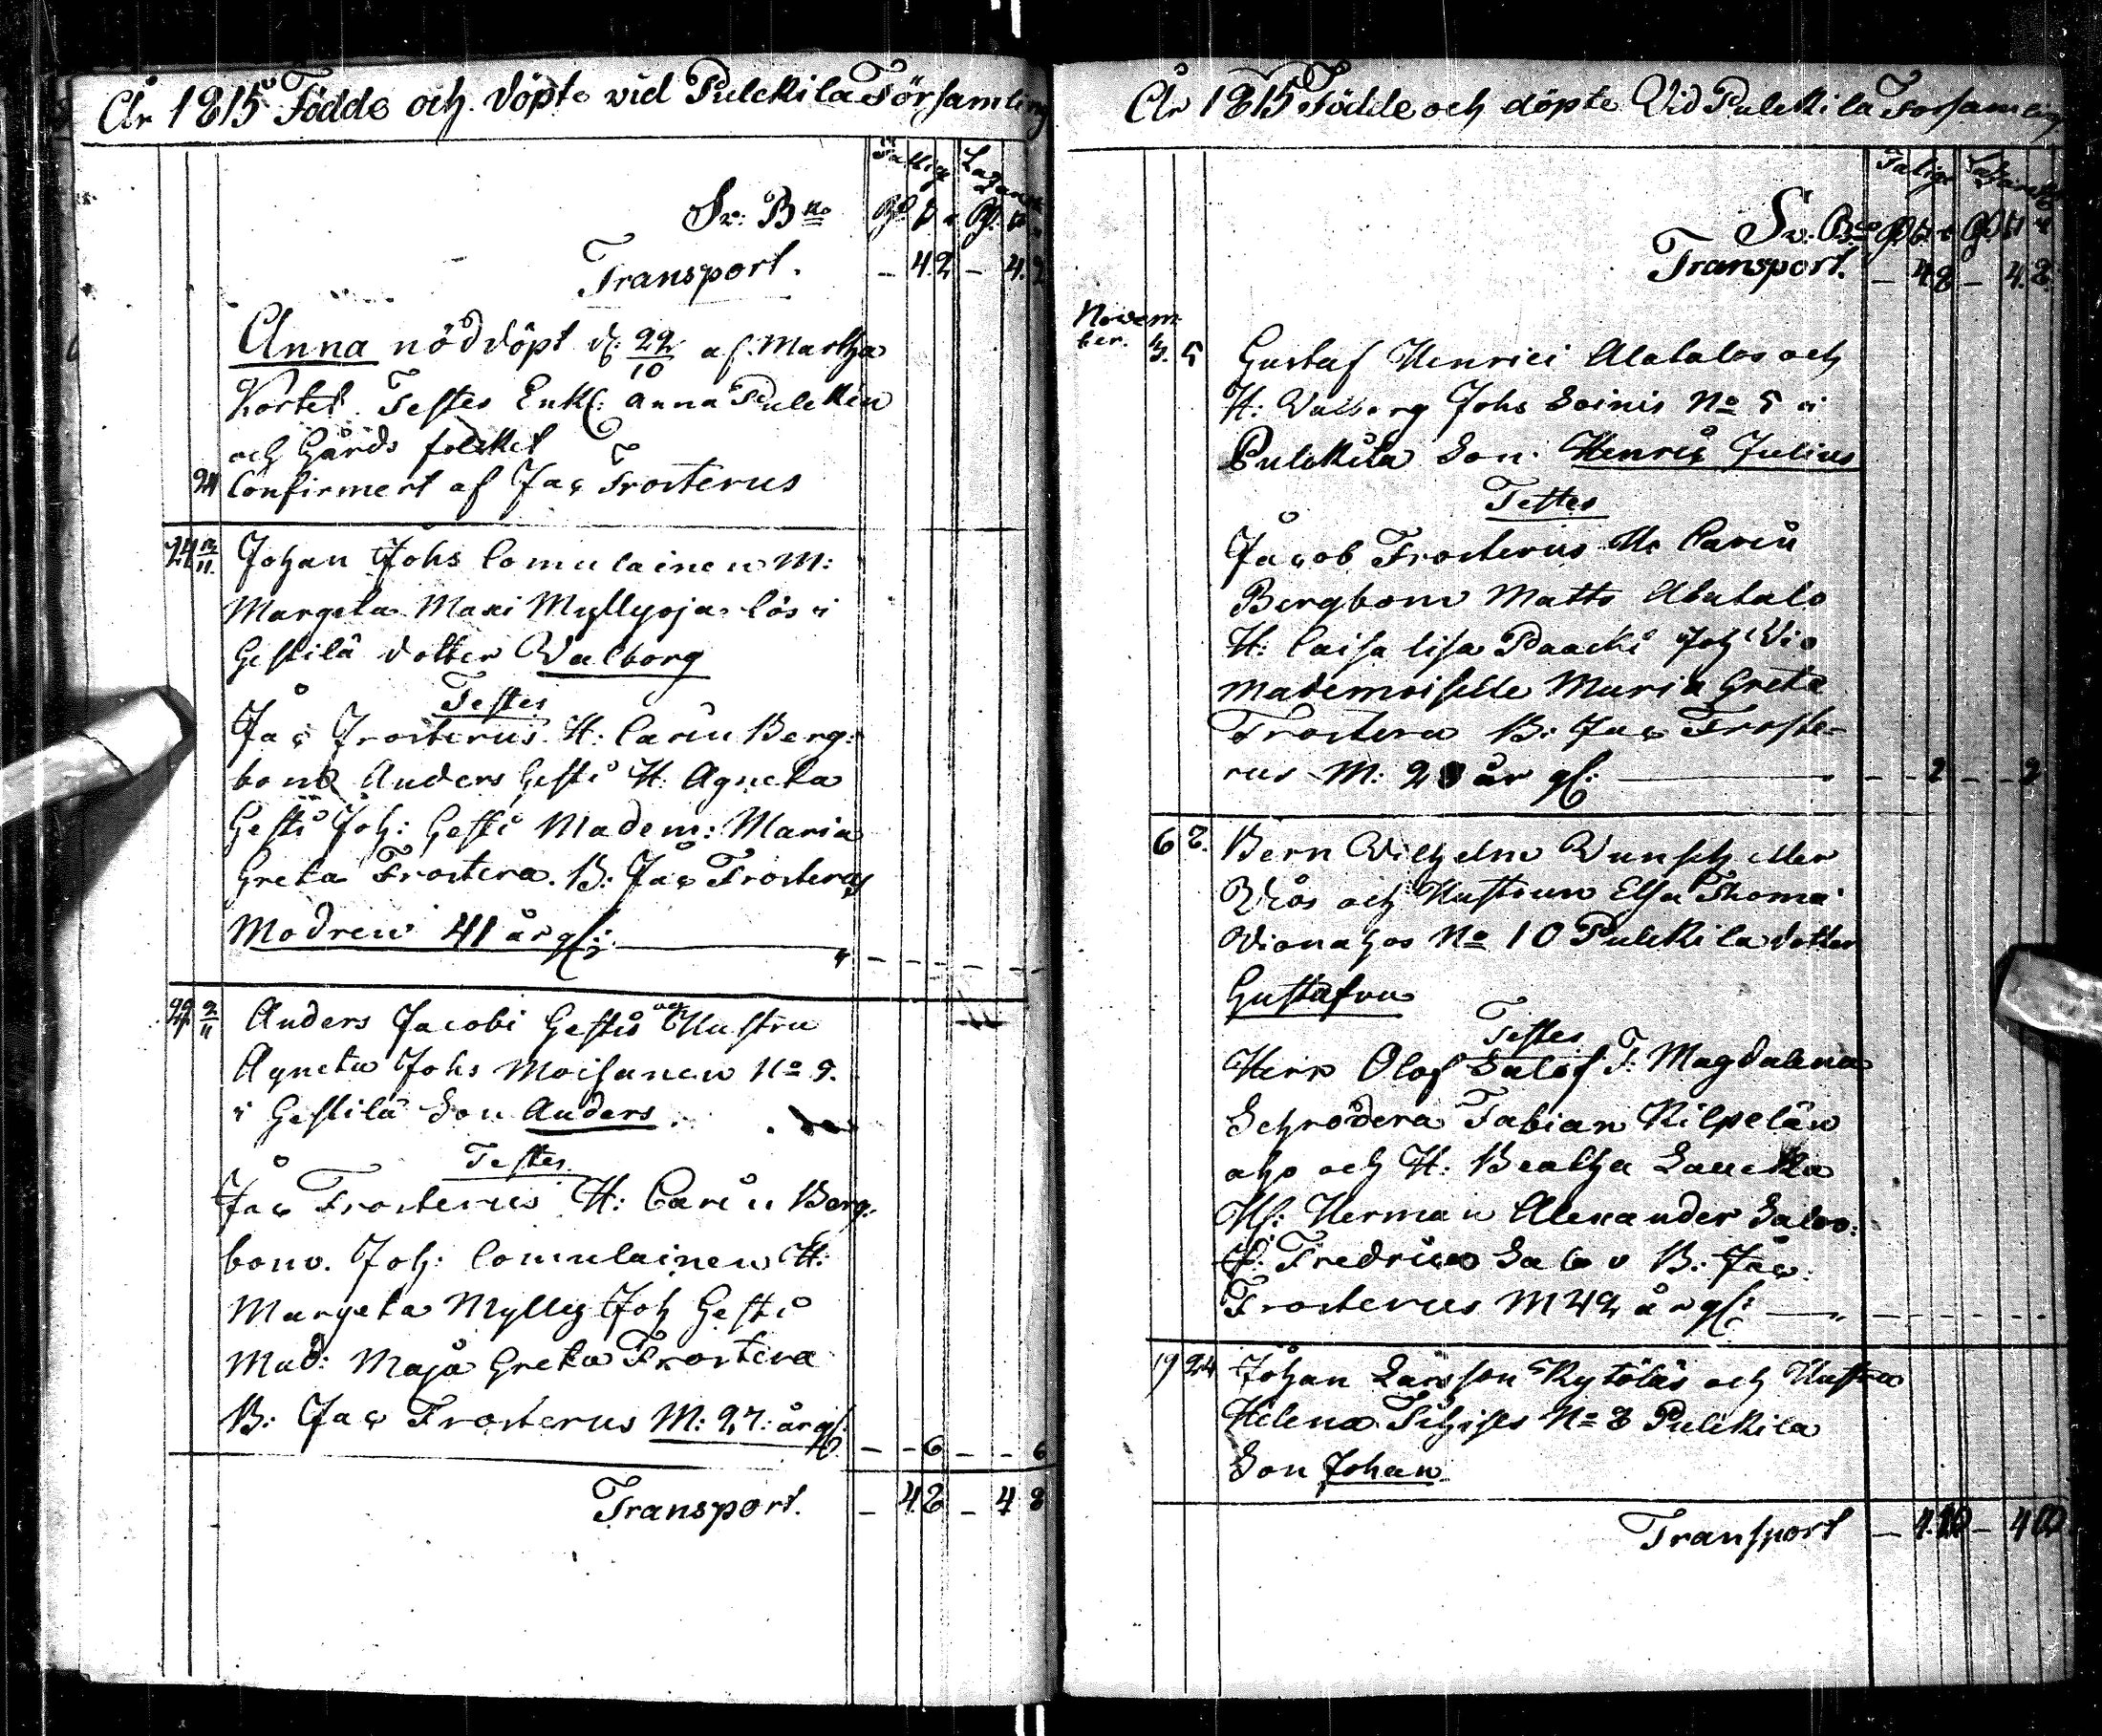 År 1815 Födde och döpte vid Pulckila Församling
Fattig Lazaret
Sv: B:no
Transport. - 4.2 - 4.2
Anna nöddöpt d: 22/10 af Martha
Kortet. Testes Enk: Anna Pulckin
och Gårds folcket
24 Confirmert af Jac Frosterus
24 2/11 Johan Johs Comulainen M:
Margeta Maxi Myllyoja lös i
Gestilä dotter Walborg
Testes
Jac Frosterus. H: Carin Berg:
bom Anders Gesti H: Agneta
Gesti Joh: Gesti Madem: Maria
Greta Frostera. B: Jac Frosterus
Modren 41 år gl:
27 2/11 Anders Jacobi Gestis och Hustru
Agneta Johs Moisanen No 5.
i Gestilä Son Anders
Testes
Jac Frosterus H: Carin Berg:
bom. Joh: Comulainen H:
Margeta Mylly Joh Gesti
Mad: Maja Greta Frostera
B: Jac Frosterus M: 27: år gl: - - 6 - - 6
Transport. - 4.8 - 4 8
År 1815 Födde och döpte Vid Pulckila Forsamling
Fatige Lazaret
Sv: B:no
Transport. - 4.8 - 4.8.
Novem-
ber. 3. 5 Gustaf Henrici Alatalos och
H: Walborg Johs Soinis No 5 i
Pulckila Son Henric Julius
Testes
Jacob Frosterus H: Carin
Bergbom Matts Alatalo
H: Caisa Lisa Paacki Joh Vio
Mademoiselle Maria Greta
Frostera B: Jac Froste-
rus M: 20 år gl: - - 2 - - 2
6 8. Bern Wilhelm Wunsch eller
Viös och Hustrun Elsa Thomæ
Wionahos No 10 Pulckila dotter
Gustafva
Testes
Herr Olof Salof F: Magdalena
Schrodera Fabian Kilpelän
aho och H: Beatha Laucka
Hs: Herman Alexander Salov:
J: Fredrica Salov B: Jac:
Frosterus M 42 år gl:
19 24 Johan Larsson Kytöläs och Hustru
Helena Sihises No 8 Pulckila
Son Johan
Transport - 4.10 - 4 10